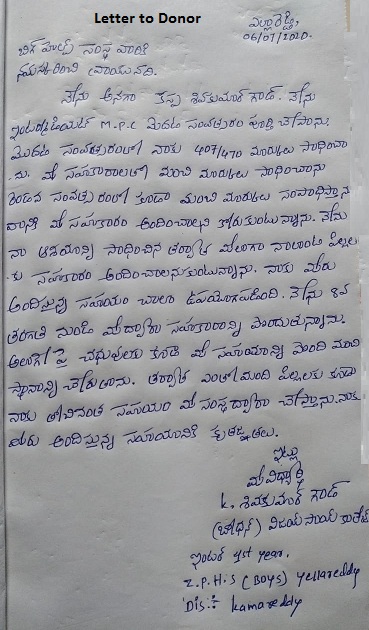 Letter to Donor
ఎల్లారెడ్డి,
06/07/2020.
బిగ్ హెల్ప్ సంస్థ వారికి
నమస్కరించి వ్రాయునది.
నేను అనగా కస్ప శివకుమార్ గౌడ్. నేను
ఇంటర్మీడియట్ M.P.C మొదటి సంవత్సరం పూర్తి చేసాను.
మొదటి సంవత్సరంలో నాకు 407/470 మార్కులు సాధించా
ను. మీ సహకారాలతో మంచి మార్కులు సాధించాను
రెండవ సంవత్సరంలో కూడా మంచి మార్కులు సంపాదిస్తాన
దానికి మీ సహకారం అందించాలని కోరుకుంటున్నాను. నేను
నా ఆశయాన్ని సాధించిన తర్వాత మీలాగా నాలాంటి పిల్లల
కు సహకారం అందించాలనుకుంటున్నాను. నాకు మీరు
అందిస్తున్న సహాయం చాలా ఉపయోగపడింది. నేను 8వ
తరగతి నుండి మీ ద్వారా సహకారాన్ని పొందుతున్నాను.
అలాగే పై చదువులకు కూడా మీ సహాయాన్ని పొంది మంచి
స్థానాన్ని చేరుతాను. తర్వాత ఎంతో మంది పిల్లలకు కూడా
నాకు తోచినంత సహాయం మీ సంస్థ ద్వారా చేస్తాను. నాకు
మీరు అందిస్తున్న సహాయానికి కృతజ్ఞతలు.
ఇట్లు
మీ విద్యార్థి
k. శివకుమార్ గౌడ్
(బోధన్) విజయ సాయి కాలేజ్
ఇంటర్ 1st year.
Z.P.H.S (Boys) yellareddy
Dis:- kamareddy